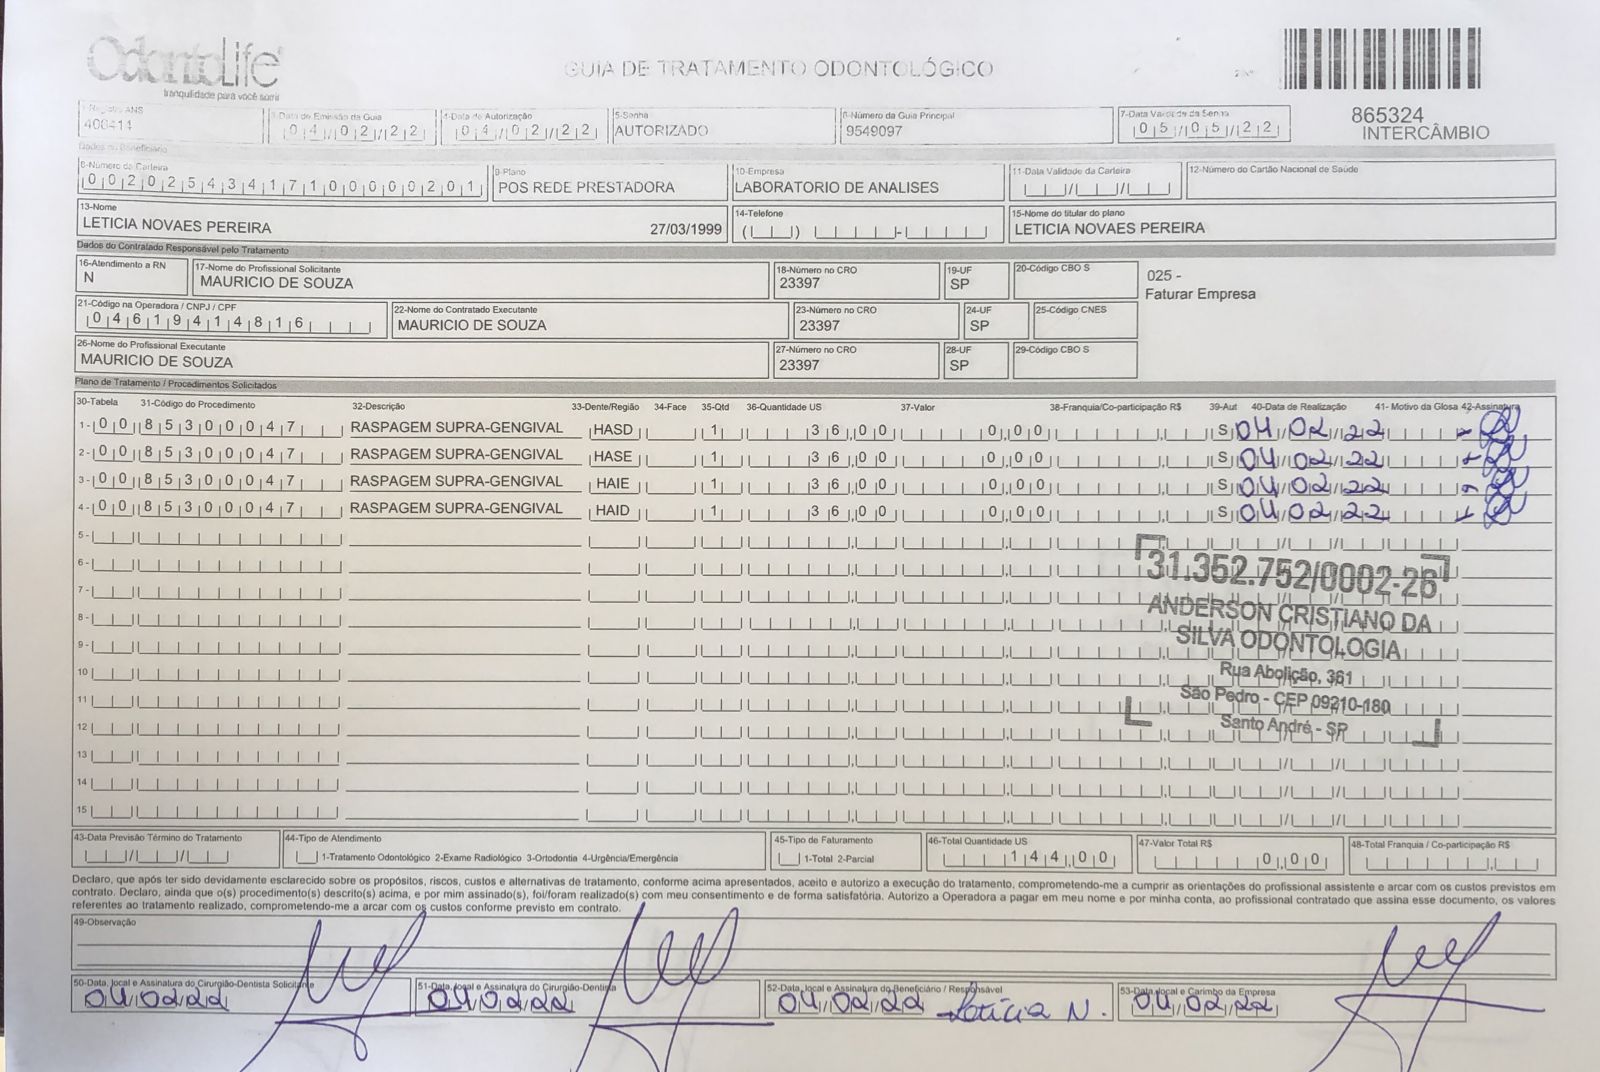 OdontoLife
tranquilidade para você sorrir
GUIA DE TRATAMENTO ODONTOLÓGICO
865324
INTERCÂMBIO
1-Registro ANS
400414
3-Data de Emissão da Guia
04/02/22
4-Data de Autorização
04/02/22
5-Senha
AUTORIZADO
6-Número da Guia Principal
9549097
7-Data Validade da Senha
05/05/22
Dados do Beneficiário
8-Número da Carteira
00202543417100000201
9-Plano
POS REDE PRESTADORA
10-Empresa
LABORATORIO DE ANALISES
11-Data Validade da Carteira
12-Número do Cartão Nacional de Saúde
13-Nome
LETICIA NOVAES PEREIRA 27/03/1999
14-Telefone
15-Nome do titular do plano
LETICIA NOVAES PEREIRA
Dados do Contratado Responsável pelo Tratamento
16-Atendimento a RN
N
17-Nome do Profissional Solicitante
MAURICIO DE SOUZA
18-Número no CRO
23397
19-UF
SP
20-Código CBO S
025 -
Faturar Empresa
21-Código na Operadora / CNPJ / CPF
04619414816
22-Nome do Contratado Executante
MAURICIO DE SOUZA
23-Número no CRO
23397
24-UF
SP
25-Código CNES
26-Nome do Profissional Executante
MAURICIO DE SOUZA
27-Número no CRO
23397
28-UF
SP
29-Código CBO S
Plano de Tratamento / Procedimentos Solicitados
30-Tabela 31-Código do Procedimento 32-Descrição 33-Dente/Região 34-Face 35-Qtd 36-Quantidade US 37-Valor 38-Franquia/Co-participação R$ 39-Aut 40-Data de Realização 41- Motivo da Glosa 42-Assinatura
1- 00 85300047 RASPAGEM SUPRA-GENGIVAL HASD 1 36,00 0,00 S 04/02/22
2- 00 85300047 RASPAGEM SUPRA-GENGIVAL HASE 1 36,00 0,00 S 04/02/22
3- 00 85300047 RASPAGEM SUPRA-GENGIVAL HAIE 1 36,00 0,00 S 04/02/22
4- 00 85300047 RASPAGEM SUPRA-GENGIVAL HAID 1 36,00 0,00 S 04/02/22
5-
6-
7-
8-
9-
10
11
12
13
14
15
31.352.752/0002-26
ANDERSON CRISTIANO DA
SILVA ODONTOLOGIA
Rua Abolição, 361
São Pedro - CEP 09210-180
Santo André - SP
43-Data Previsão Término do Tratamento
44-Tipo de Atendimento
1-Tratamento Odontológico 2-Exame Radiológico 3-Ortodontia 4-Urgência/Emergência
45-Tipo de Faturamento
1-Total 2-Parcial
46-Total Quantidade US
144,00
47-Valor Total R$
0,00
48-Total Franquia / Co-participação R$
Declaro, que após ter sido devidamente esclarecido sobre os propósitos, riscos, custos e alternativas de tratamento, conforme acima apresentados, aceito e autorizo a execução do tratamento, comprometendo-me a cumprir as orientações do profissional assistente e arcar com os custos previstos em
contrato. Declaro, ainda que o(s) procedimento(s) descrito(s) acima, e por mim assinado(s), foi/foram realizado(s) com meu consentimento e de forma satisfatória. Autorizo a Operadora a pagar em meu nome e por minha conta, ao profissional contratado que assina esse documento, os valores
referentes ao tratamento realizado, comprometendo-me a arcar com os custos conforme previsto em contrato.
49-Observação
50-Data, local e Assinatura do Cirurgião-Dentista Solicitante
04/02/22
51-Data, local e Assinatura do Cirurgião-Dentista
04/02/22
52-Data, local e Assinatura do Beneficiário / Responsável
04/02/22 Letícia N.
53-Data, local e Carimbo da Empresa
04/02/22